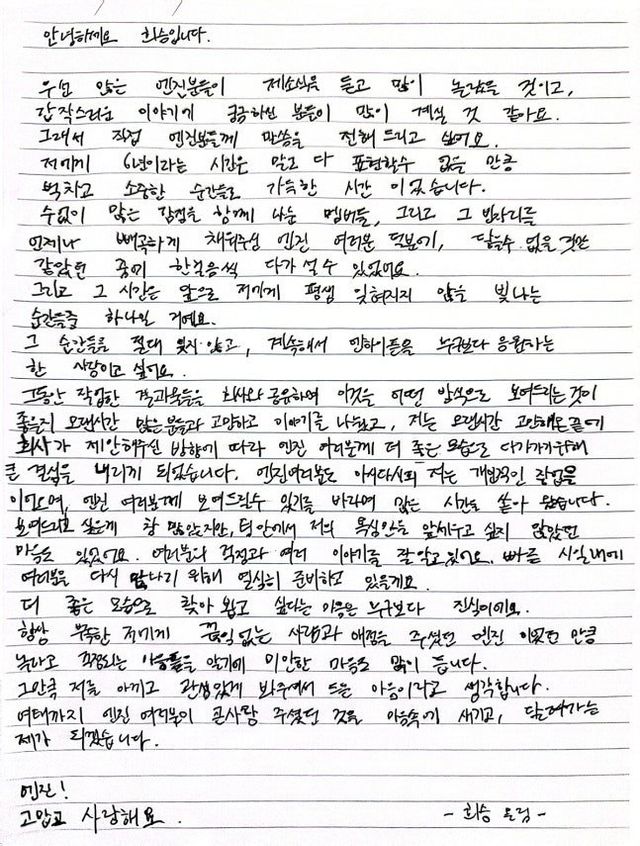 안녕하세요 희승입니다.
우선 많은 엔진분들이 제소식을 듣고 많이 놀랐을 것이고,
갑작스러운 이야기에 궁금하신 분들이 많이 계실 것 같아요.
그래서 직접 엔진분들께 말씀을 전해 드리고 싶어요.
저에게 6년이라는 시간은 말로 다 표현할수 없을 만큼
벅차고 소중한 순간들로 가득한 시간 이었습니다.
수없이 많은 감정을 함께 나눈 멤버들, 그리고 그 빈자리를
언제나 빼곡하게 채워주신 엔진 여러분 덕분에, 닿을수 없을 것만
같았던 꿈에 한걸음씩 다가 설 수 있었어요.
그리고 그 시간은 앞으로 저에게 평생 잊혀지지 않을 빛나는
순간들중 하나일 거예요.
그 순간들을 절대 잊지 않고, 계속해서 엔하이픈을 누구보다 응원하는
한 사람이고 싶어요.
그동안 작업한 결과물들을 회사와 공유하며 이것을 어떤 방식으로 보여드리는것이
좋을지 오랜시간 많은분들과 고민하고 이야기를 나눴고, 저는 오랜시간 고민해온 끝에
회사가 제안해주신 방향에 따라 엔진 여러분께 더 좋은 모습으로 다가가기위해
큰 결심을 내리게 되었습니다. 엔진여러분도 아시다시피 저는 개인적인 작업을
이어오며, 엔진 여러분께 보여드릴수 있기를 바라며 많은 시간을 쏟아 왔습니다.
보여드리고 싶은게 참 많았지만, 팀 안에서 저의 욕심만을 앞세우고 싶지 않았던
마음도 있었어요. 여러분의 걱정과 여러 이야기를 잘 알고있어요. 빠른 시일내에
여러분을 다시 만나기 위해 열심히 준비하고 있을게요.
더 좋은 모습으로 찾아 뵙고 싶다는 마음은 누구보다 진심이에요.
항상 부족한 저에게 끊임없는 사랑과 애정을 주셨던 엔진 이었던 만큼
놀라고 걱정되는 마음들을 알기에 미안한 마음도 많이 듭니다.
그만큼 저를 아끼고 관심있게 봐주셔서 드는 마음이라고 생각합니다.
여태까지 엔진 여러분이 큰사랑 주셨던 것을 마음속에 새기고, 달려가는
제가 되겠습니다.
엔진!
고맙고 사랑해요.
- 희승 올림 -